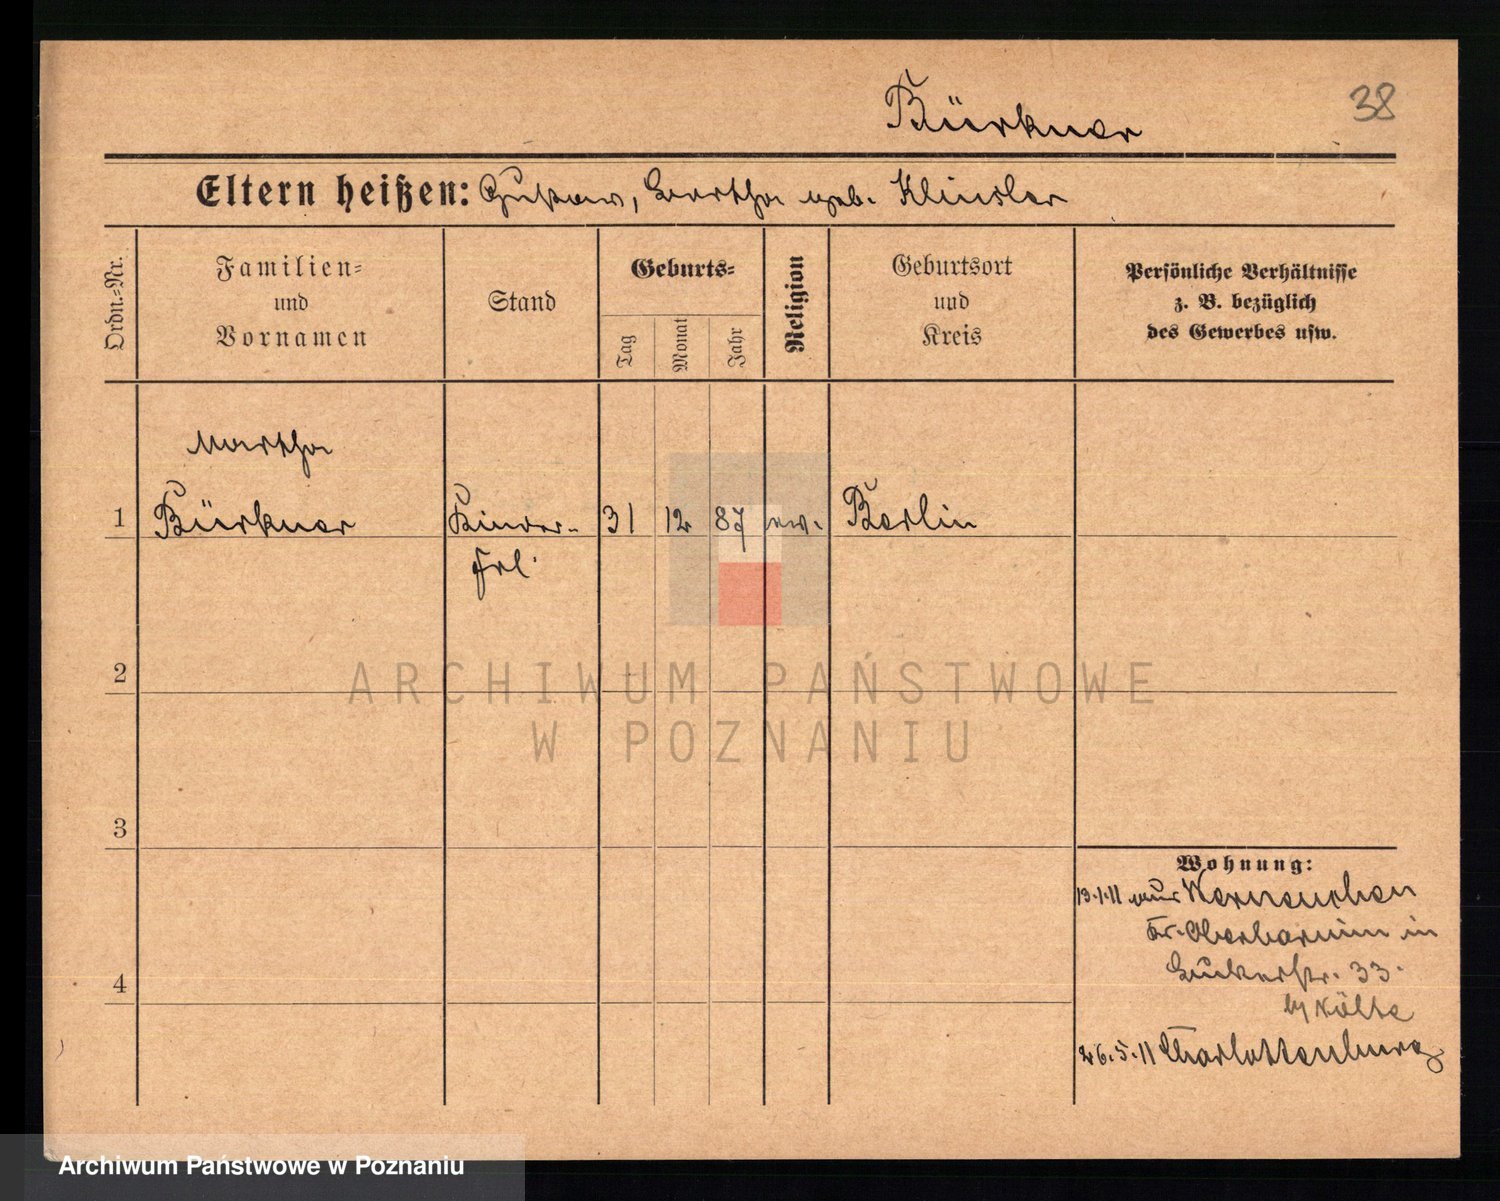 Bürkner
38
Eltern heißen: Gustav, Bertha geb. Klinsler
Ordn.-Nr.
Familien-
und
Vornamen
Stand
Geburts-
Tag
Monat
Jahr
Religion
Geburtsort
und
Kreis
Persönliche Verhältnisse
z. B. bezüglich
des Gewerbes usw.
Martha
1 Bürkner Kinder- 31 12 87 ev. Berlin
Frl.
2
ARCHIWUM PAŃSTWOWE
W POZNANIU
3
Wohnung:
13.1.11 aus Werneuchen
Kr. Oberbarnim in
33.
4
b/ Nölte
26.5.11 Charlottenburg
Archiwum Państwowe w Poznaniu